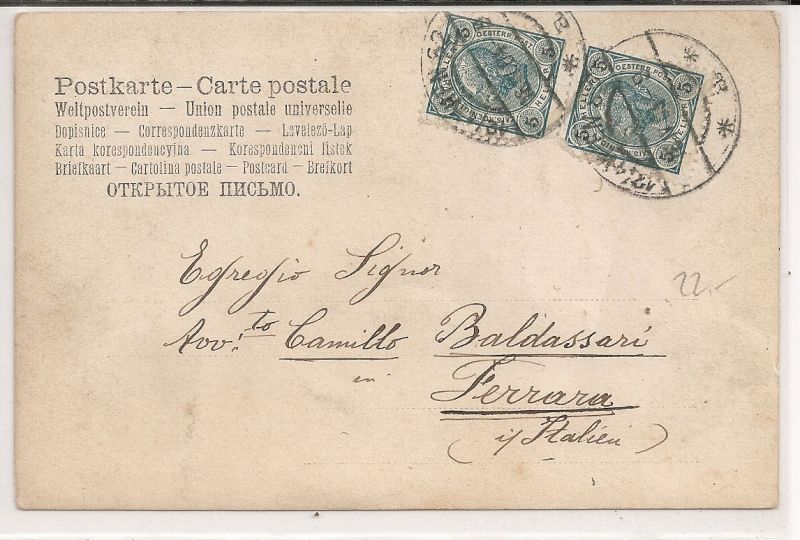 Postkarte – Carte postale
Weltpostverein – Union postale universelle
Dopisnice – Correspondenzkarte – Levelező-Lap
Karta korespondencyjna – Korespondencni listek
Briefkaart – Cartolina postale – Postcard – Brefkort
ОТКРЫТОЕ ПИСЬМО.
OESTERR. POST
5 HELLER 5
OESTERR. POST
5 HELLER 5
Egregio Signor
Avv.to Camillo Baldassari
in Ferrara
(i/ Italien)
22.-